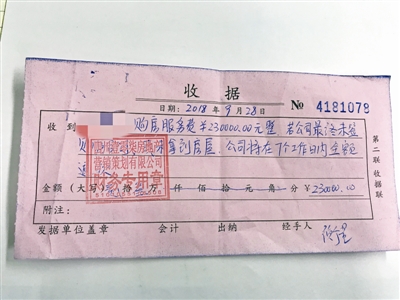 收据
日期：2018 年 9 月 28 日 № 4181078
收到 购房服务费￥230000.00元整 若公司最终未签
拿到房屋．公司将在7个工作日内全额
营销策划有限公司
财务专用章
金额（大写） 拾 万 仟 佰 拾 元 角 分 ￥230000.00
附注：
发据单位盖章 会计 出纳 经手人
第二联收据联